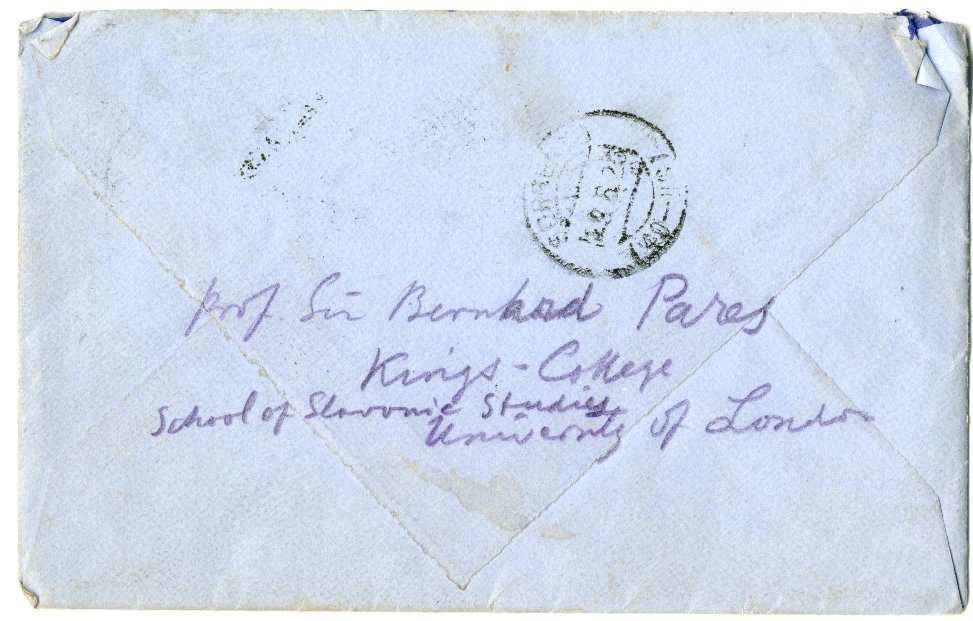 Prof. Sir Bernhard Pares
Kings-College
School of Slavonic Studies
University of London